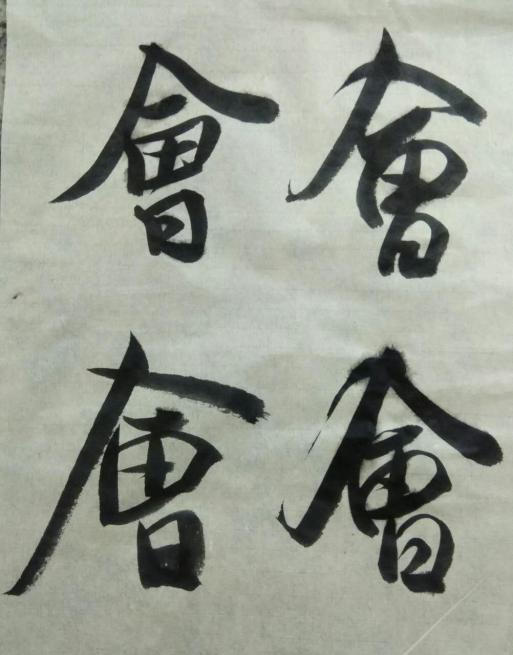 會會
會會